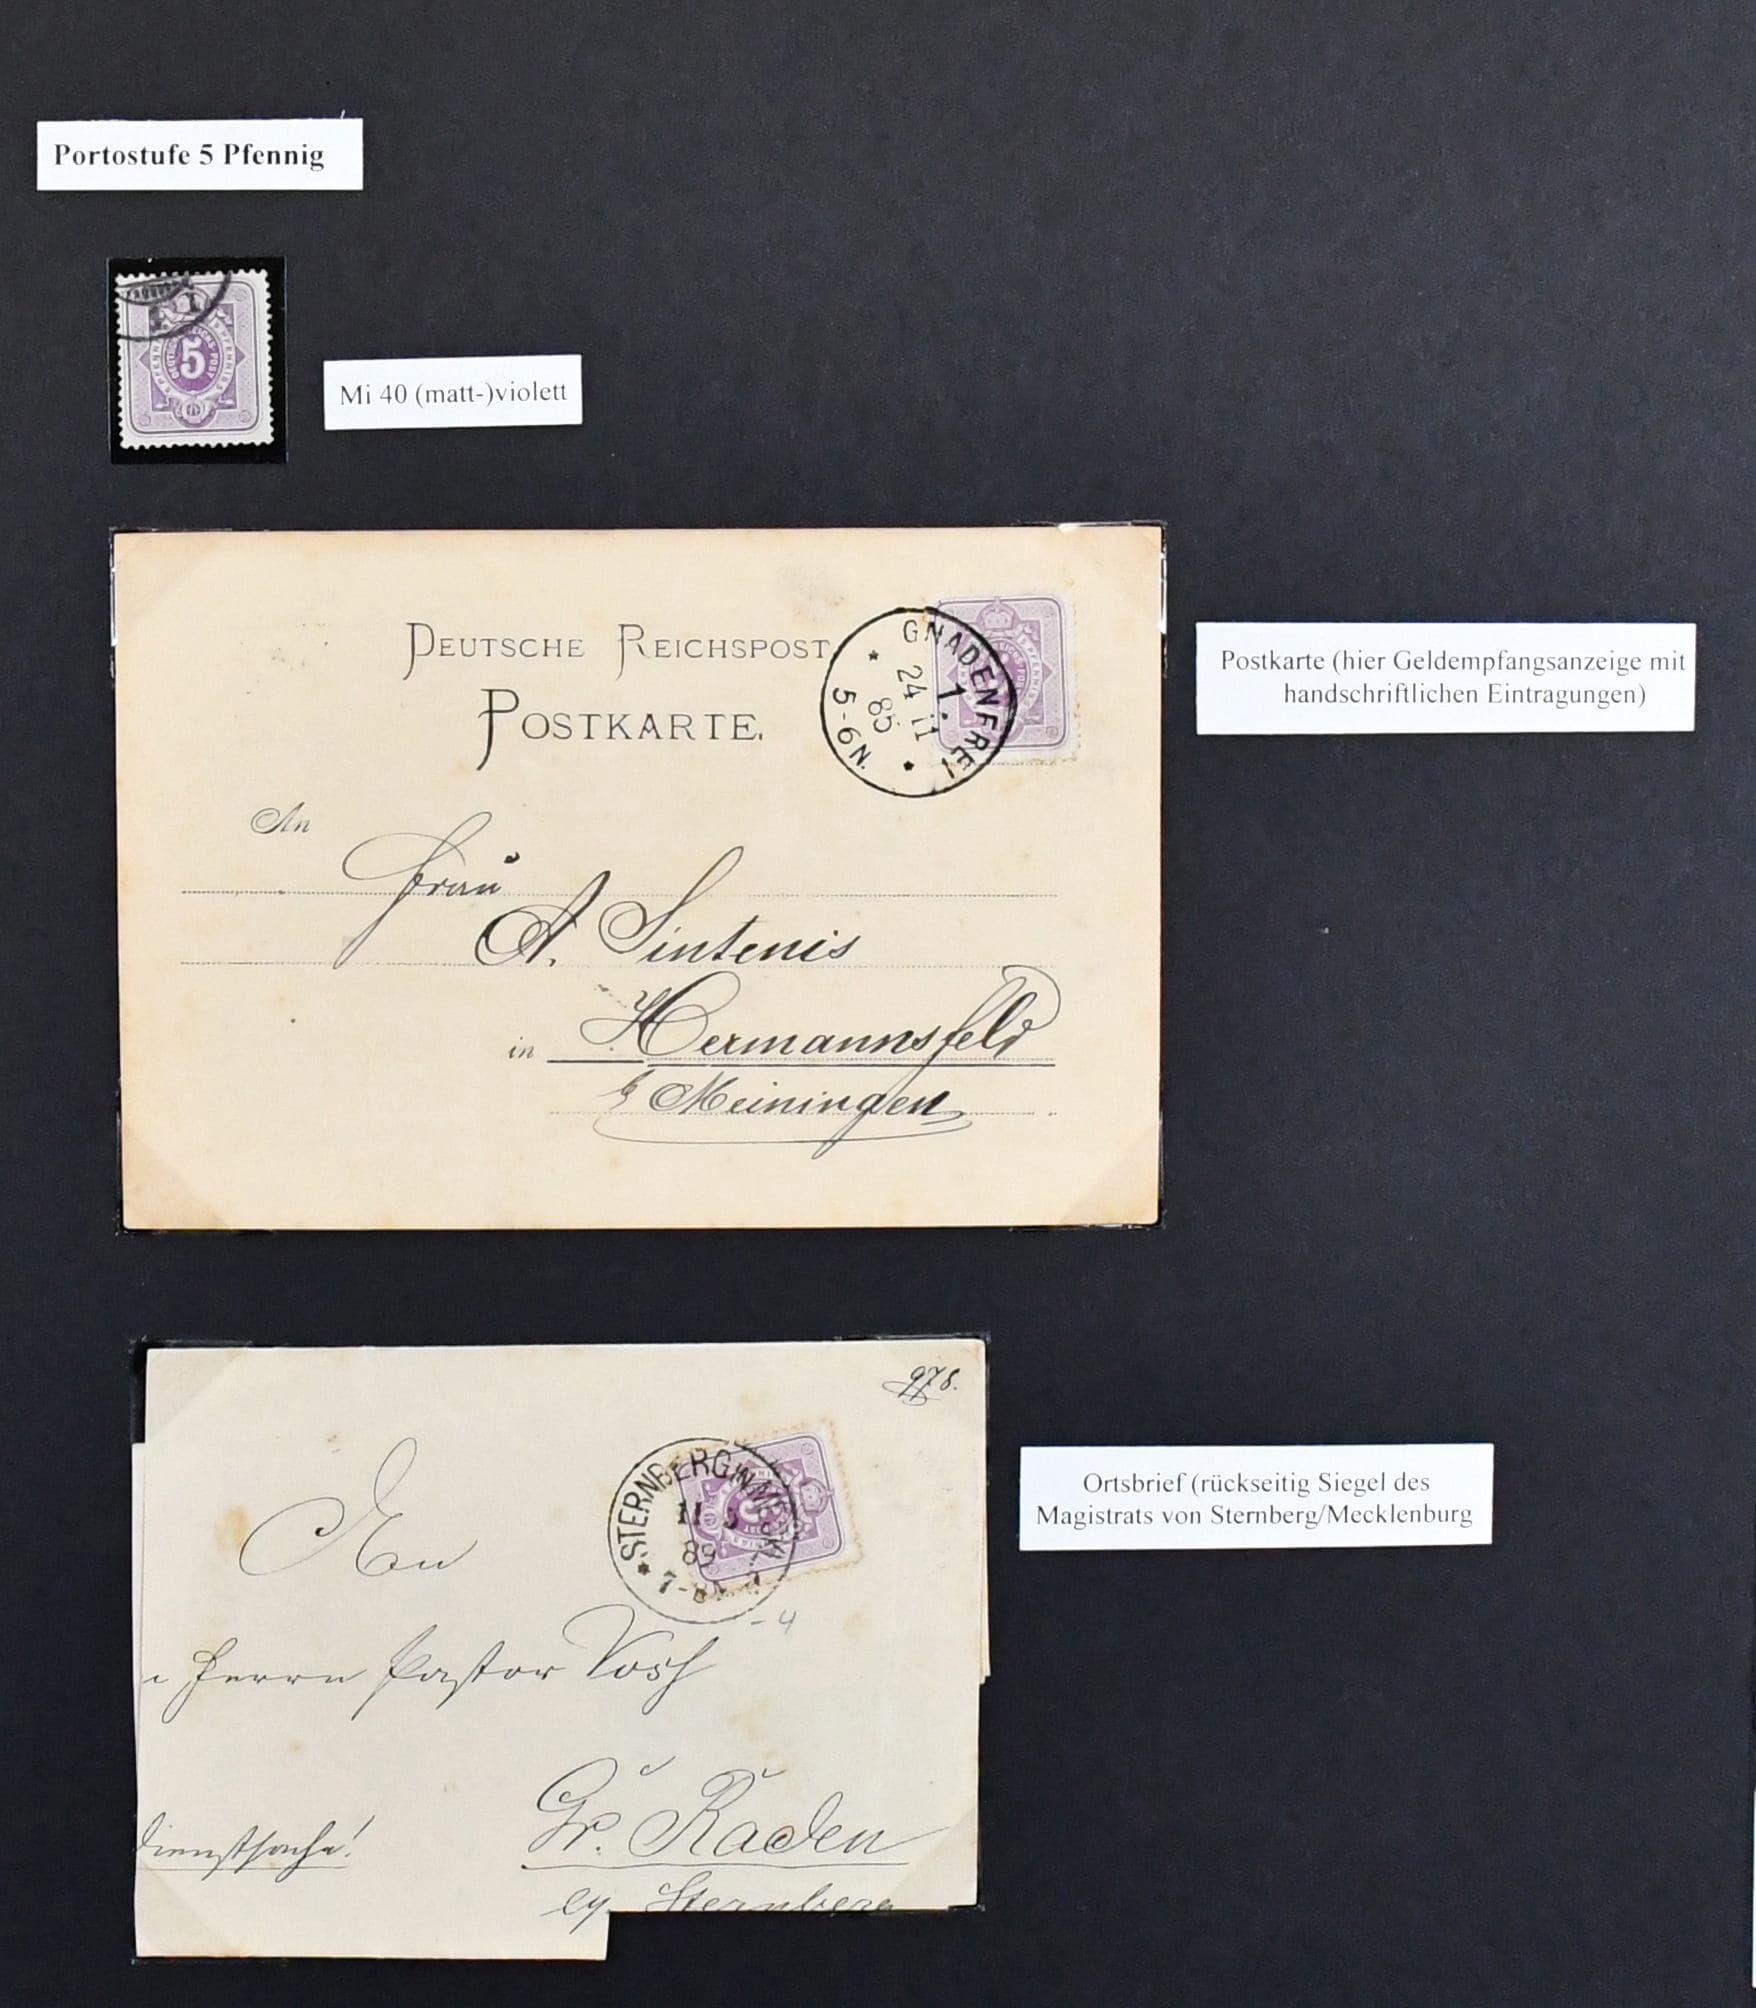 Portostufe 5 Pfennig
5
Mi 40 (matt-)violett
DEUTSCHE REICHSPOST
POSTKARTE.
GNADENFREI
1.
24 11
85
5-6N.
An
Frau
A. Sintenis
in Hermannsfeld
b/ Meiningen
Postkarte (hier Geldempfangsanzeige mit
handschriftlichen Eintragungen)
978.
STERNBERG IN MECKL.
11
89
An
Herrn Pastor Voss
Gr. Raden
Dienstsache!
Sternberg
Ortsbrief (rückseitig Siegel des
Magistrats von Sternberg/Mecklenburg